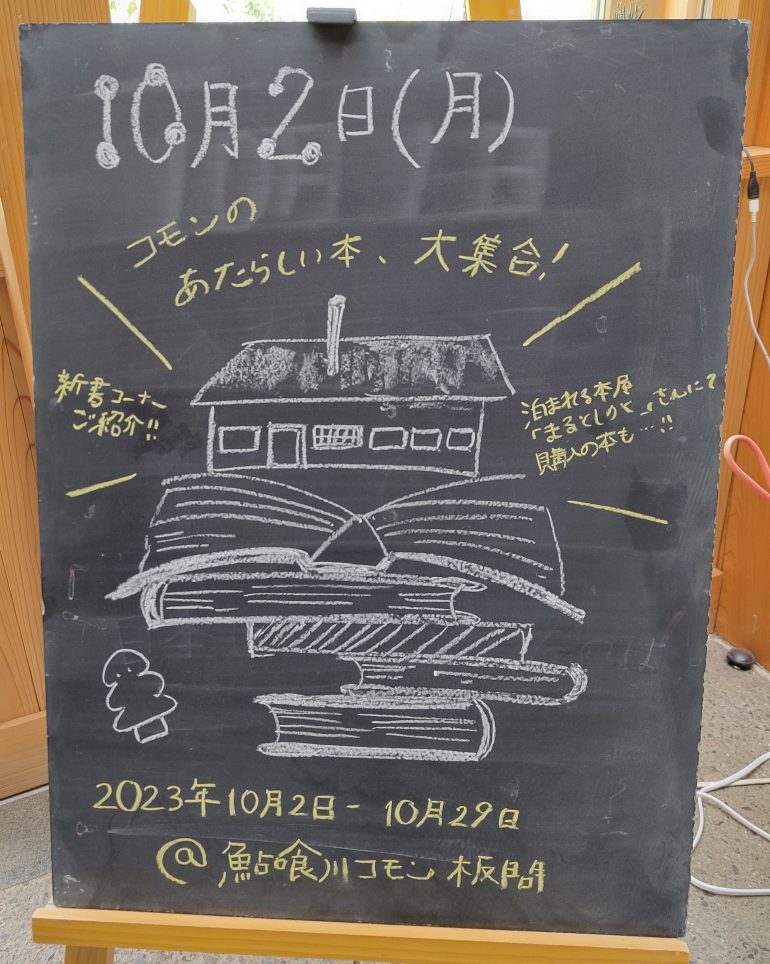 10月2日(月)
コモンの
あたらしい本、大集合!
新書コーナー
ご紹介!!
泊まれる本屋
「まるとしかく」さんにて
購入の本も…!!
2023年10月2日- 10月29日
@鮎喰川コモン 板間